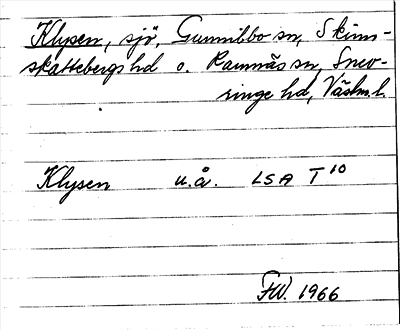 Klysen, sjö, Gunnilbo sn, Skinn-
skattebergs hd o. Ramnäs sn, Snev-
ringe hd, Västm.l.
Klysen u.å. LSA T 10
FW. 1966